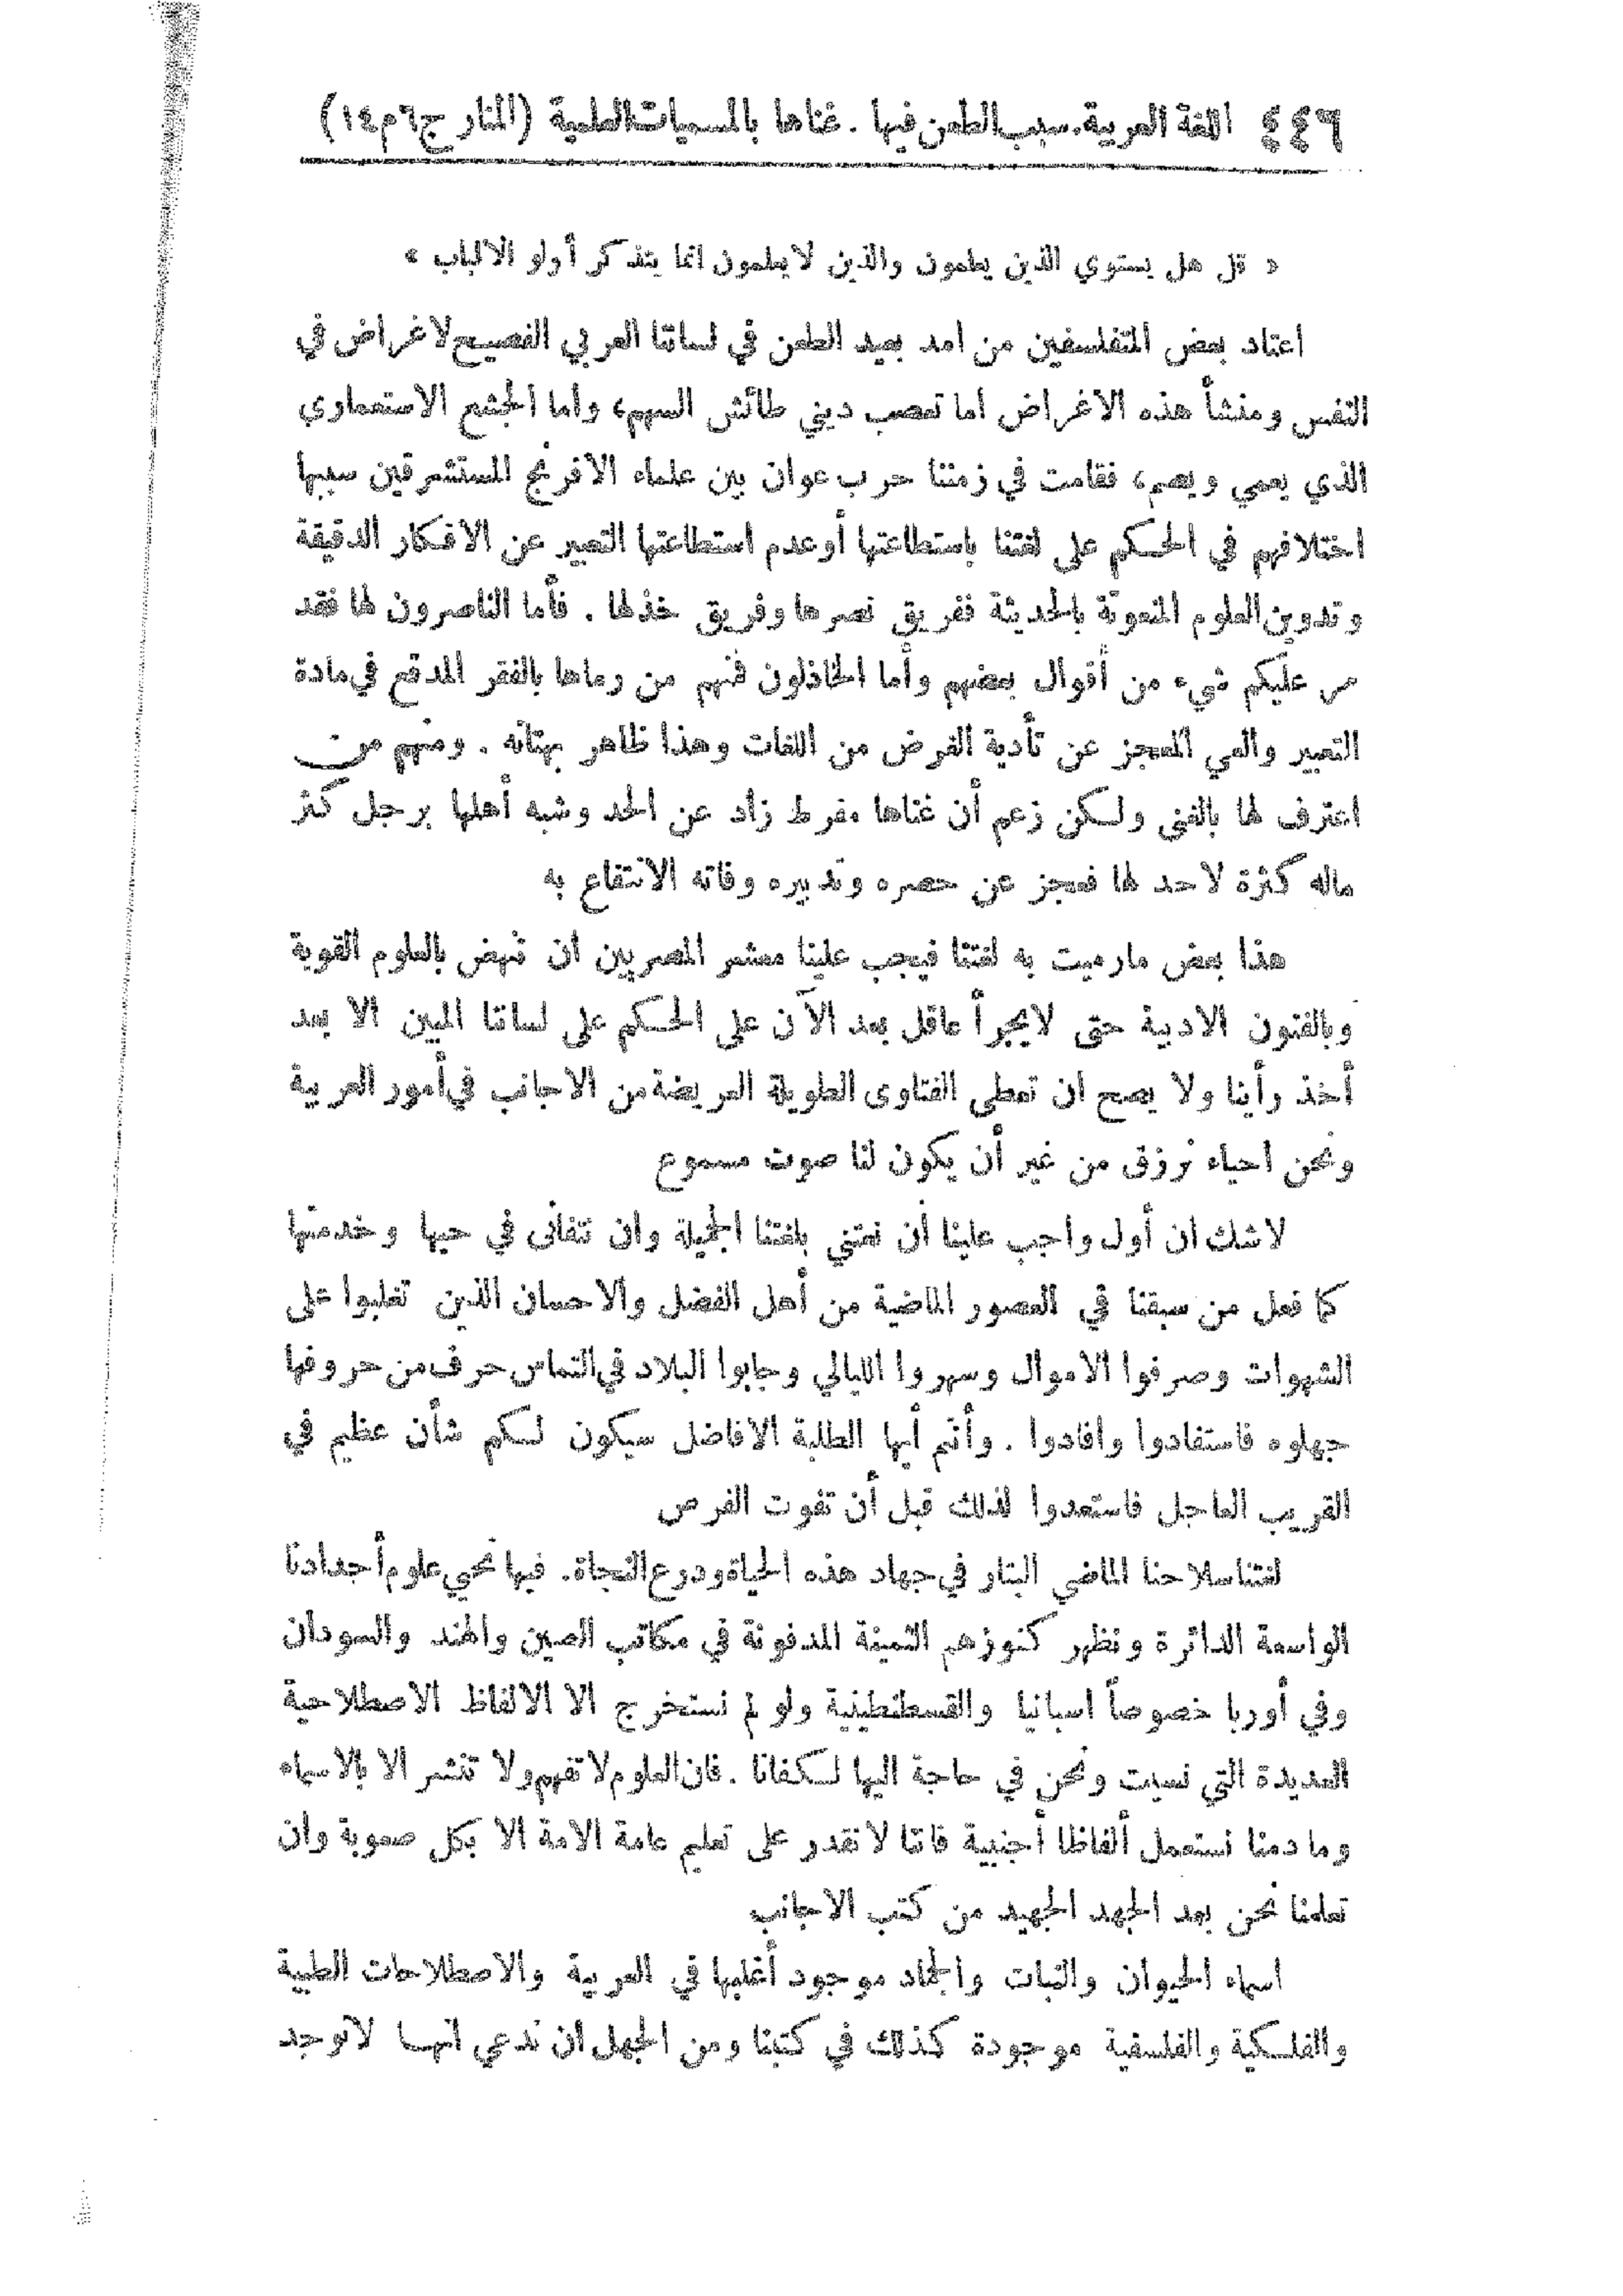 ٤٤٦ اللغة العربية. سبب الطعن فيها . غناها بالمسميات العلمية (المنار ج٦م١٤)
« قل هل يستوي الذين يعلمون والذين لايعلمون انما يتذكر أولو الالباب »
اعتاد بعض المتفلسفين من امد بعيد الطعن في لساننا العربي الفصيح لاغراض في
النفس ومنشأ هذه الاغراض اما تعصب ديني طائش السهم، واما الجشع الاستعماري
الذي يعمي ويصم، فقامت في زمننا حرب عوان بين علماء الافرنج المستشرقين سببها
اختلافهم في الحكم على لغتنا باستطاعتها أوعدم استطاعتها التعبير عن الافكار الدقيقة
وتدوين العلوم المنعوتة بالحديثة ففريق نصرها وفريق خذلها . فأما الناصرون لها فقد
مر عليكم شيء من أقوال بعضهم وأما الخاذلون فمنهم من رماها بالفقر المدقع في مادة
التعبير والعي المعجز عن تأدية الغرض من اللغات وهذا ظاهر بهتانه . ومنهم من
اعترف لها بالغنى ولكن زعم أن غناها مفرط زاد عن الحد وشبه أهلها برجل كثر
ماله كثرة لاحد لها فعجز عن حصره وتدبيره وفاته الانتفاع به
هذا بعض مارميت به لغتنا فيجب علينا معشر المصريين ان ننهض بالعلوم القوية
وبالفنون الادبية حتى لايجرأ عاقل بعد الآن على الحكم على لساننا المبين الا بعد
أخذ رأينا ولا يصح ان تعطى الفتاوى الطويلة العريضة من الاجانب في أمور العربية
ونحن احياء نرزق من غير أن يكون لنا صوت مسموع
لاشك ان أول واجب علينا أن نعتني بلغتنا الجميلة وان نتفانى في حبها وخدمتها
كما فعل من سبقنا في العصور الماضية من أهل الفضل والاحسان الذين تغلبوا على
الشهوات وصرفوا الاموال وسهروا الليالي وجابوا البلاد في التماس حرف من حروفها
جهلوه فاستفادوا وافادوا . وأنتم أيها الطلبة الافاضل سيكون لكم شأن عظيم في
القريب العاجل فاستعدوا لذلك قبل أن تفوت الفرص
لغتنا سلاحنا الماضي البتار في جهاد هذه الحياة ودرع النجاة. فبها نحيي علوم أجدادنا
الواسعة الدائرة ونظهر كنوزهم الثمينة المدفونة في مكاتب الصين والهند والسودان
وفي أوربا خصوصاً اسبانيا والقسطنطينية ولو لم نستخرج الا الالفاظ الاصطلاحية
العديدة التي نسيت ونحن في حاجة اليها لكفانا . فان العلوم لا تفهم ولا تنشر الا بالاسماء
وما دمنا نستعمل ألفاظا أجنبية فاننا لا نقدر على تعليم عامة الامة الا بكل صعوبة وان
تعلمنا نحن بعد الجهد الجهيد من كتب الاجانب
اسماء الحيوان والنبات والجماد موجود أغلبها في العربية والاصطلاحات الطبية
والفلكية والفلسفية موجودة كذلك في كتبنا ومن الجهل ان ندعي انها لاتوجد